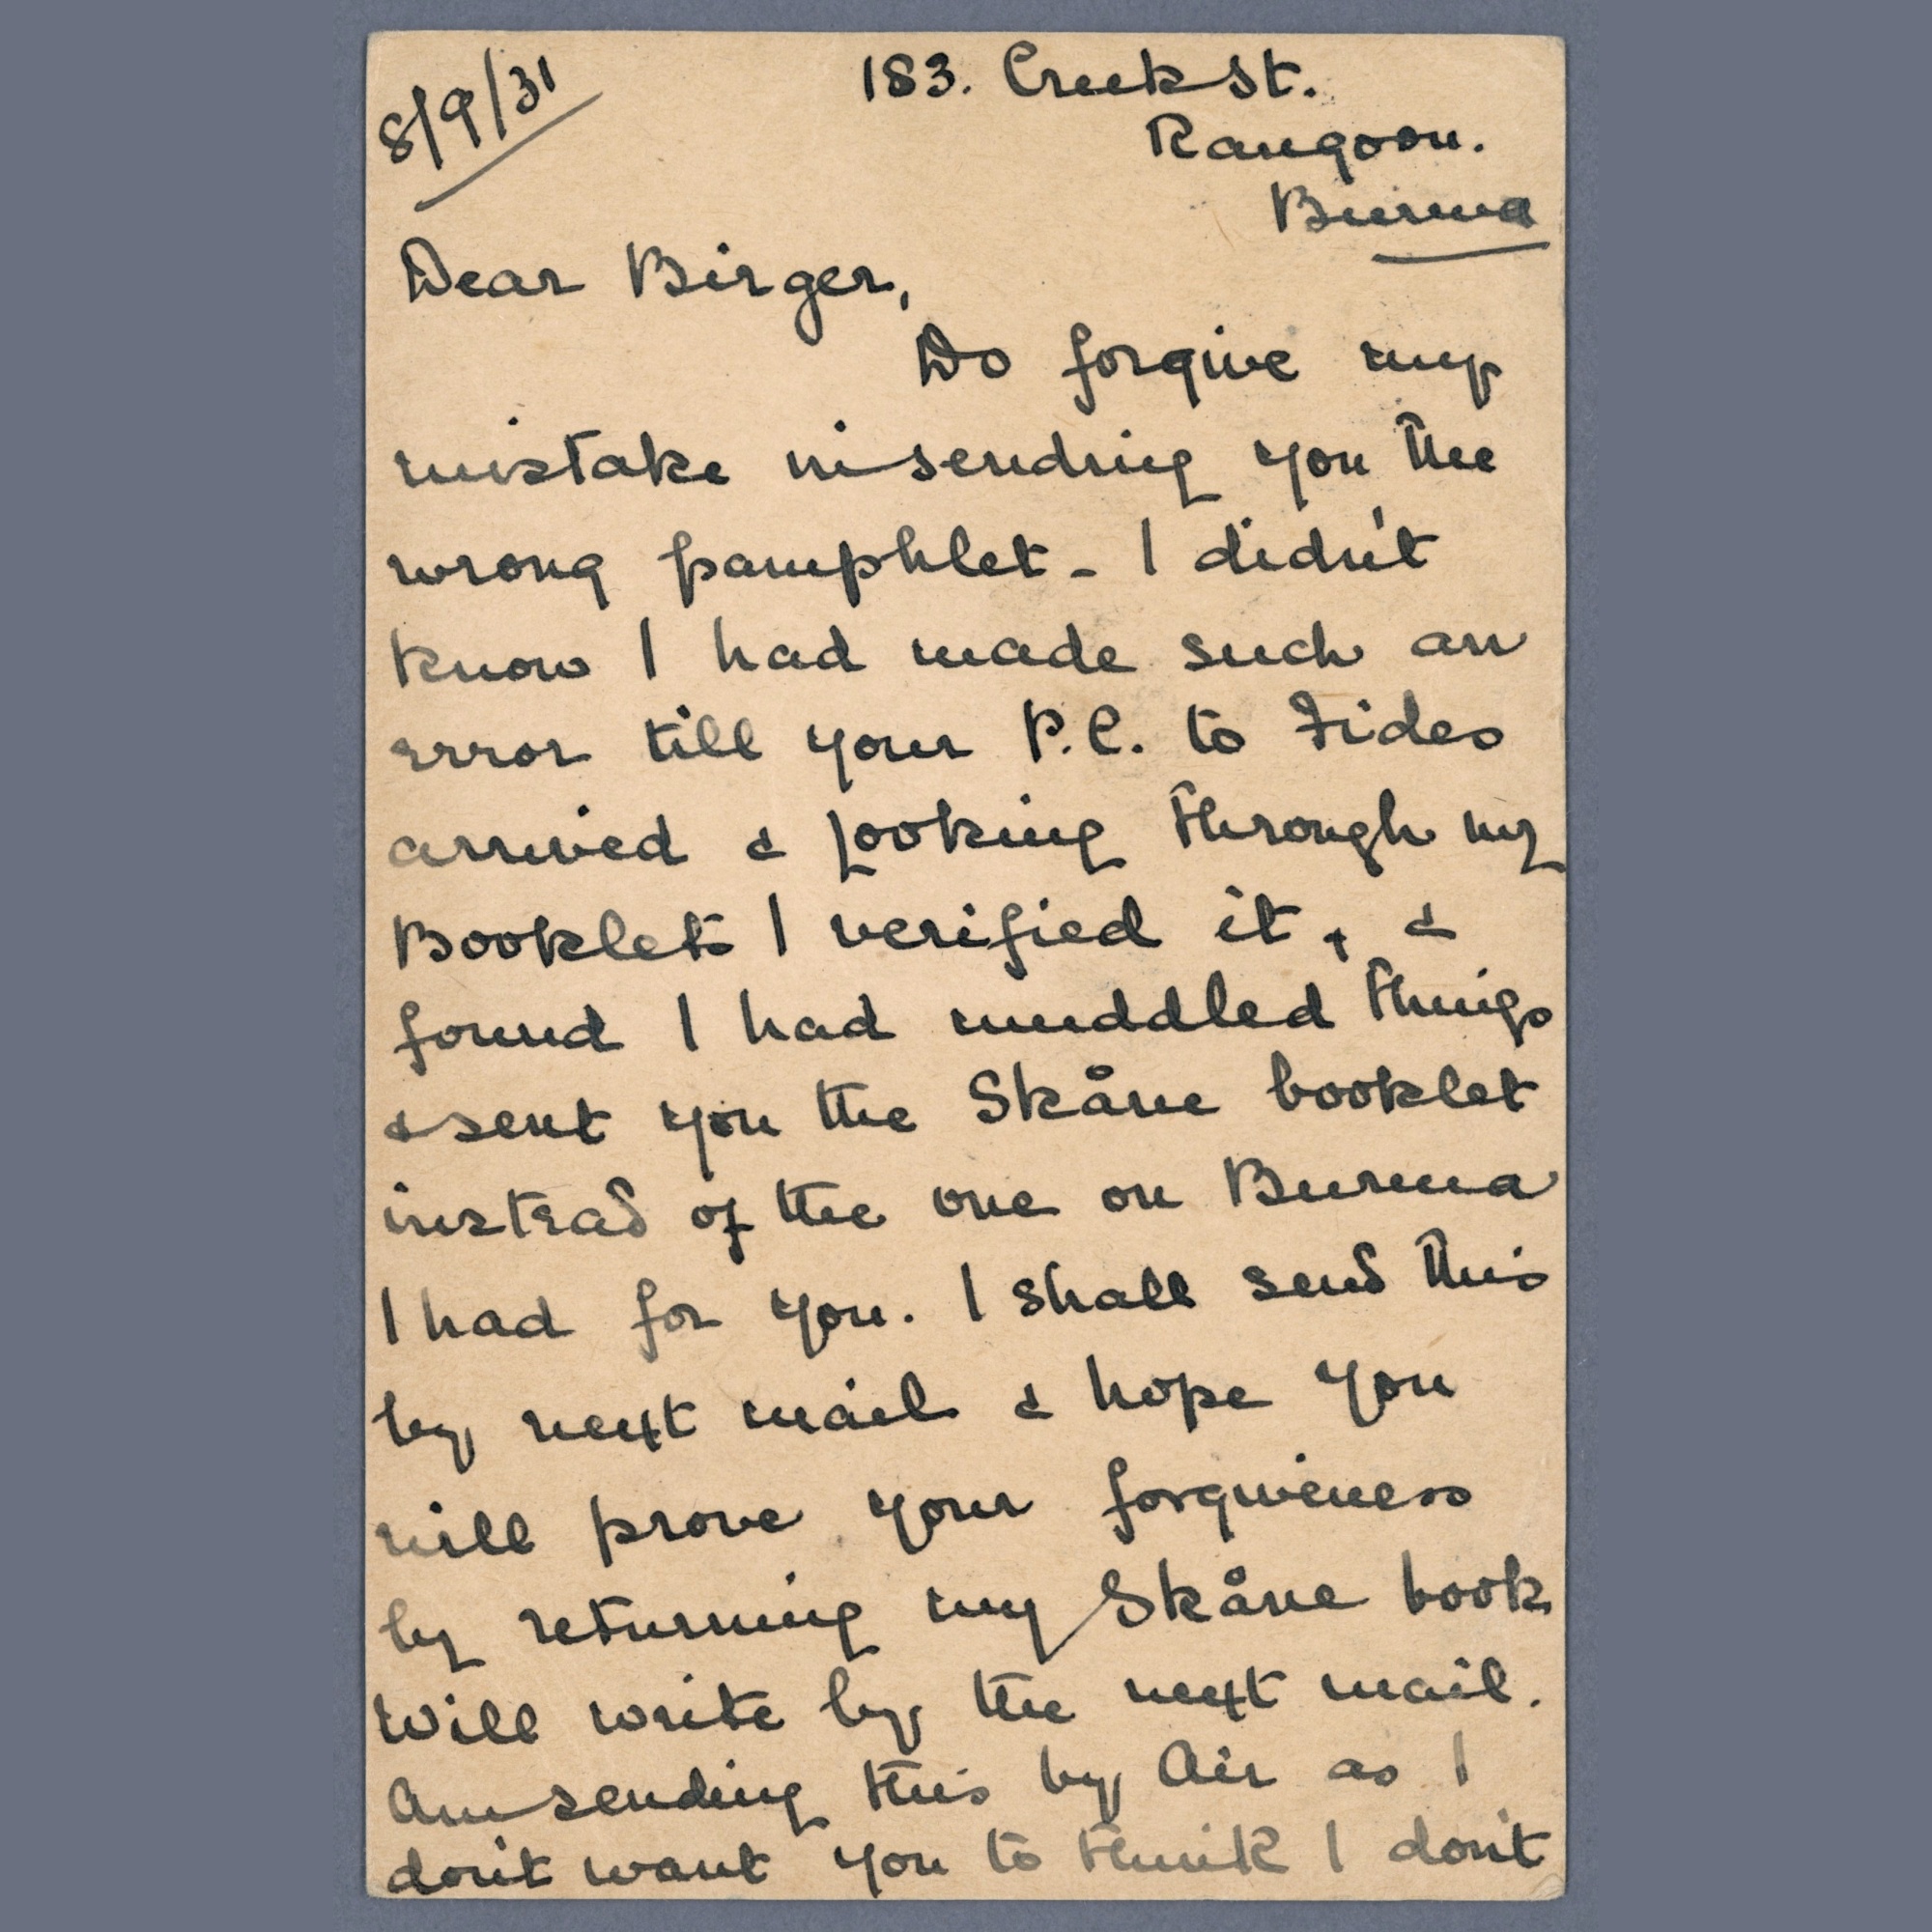 8/9/31
183. Creek St.
Rangoon.
Burma
Dear Birger,
Do forgive my
mistake in sending you the
wrong pamphlet - I didn't
know I had made such an
error till your P.C. to Fides
arrived & looking through my
Booklets I verified it, &
found I had muddled things
& sent you the Skåne booklet
instead of the one on Burma
I had for you. I shall send this
by next mail & hope you
will prove your forgiveness
by returning my Skåne book
Will write by the next mail.
Am sending this by Air as I
don't want you to think I don't